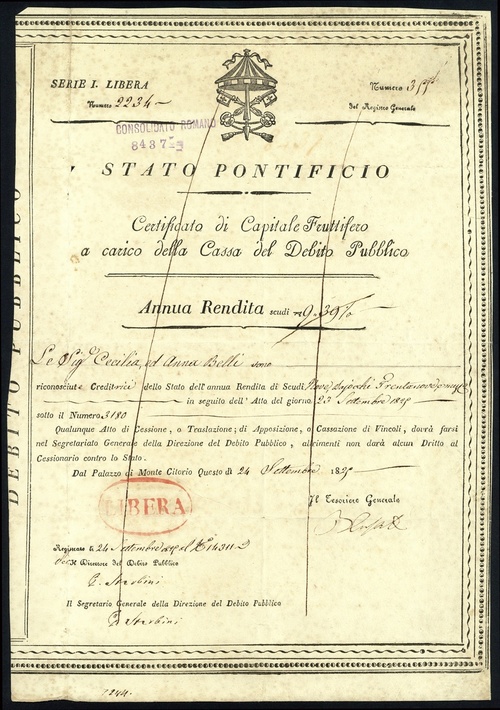 SERIE I. LIBERA
Numero 2234
Numero
del Registro Generale
CONSOLIDATO ROMANO
8437
STATO PONTIFICIO
Certificato di Capitale Fruttifero
a carico della Cassa del Debito Pubblico
Annua Rendita scudi 9.39
Le Sig.e Cecilia, ed Anna Belli sono
riconosciute Creditrici dello Stato dell'annua Rendita di Scudi Nove, bajocchi Trentanove
in seguito dell'Atto del giorno 23 Settembre
sotto il Numero 3180
Qualunque Atto di Cessione, o Traslazione; di Apposizione, o Cassazione di Vincoli, dovrà farsi
nel Segretariato Generale della Direzione del Debito Pubblico, altrimenti non darà alcun Dritto al
Cessionario contro lo Stato.
Dal Palazzo di Monte Citorio Questo dì 24 Settembre
LIBERA
Il Tesoriere Generale
Registrato li 24 Settembre
Il Direttore del Debito Pubblico
Il Segretario Generale della Direzione del Debito Pubblico
DEBITO PUBBLICO
1244.